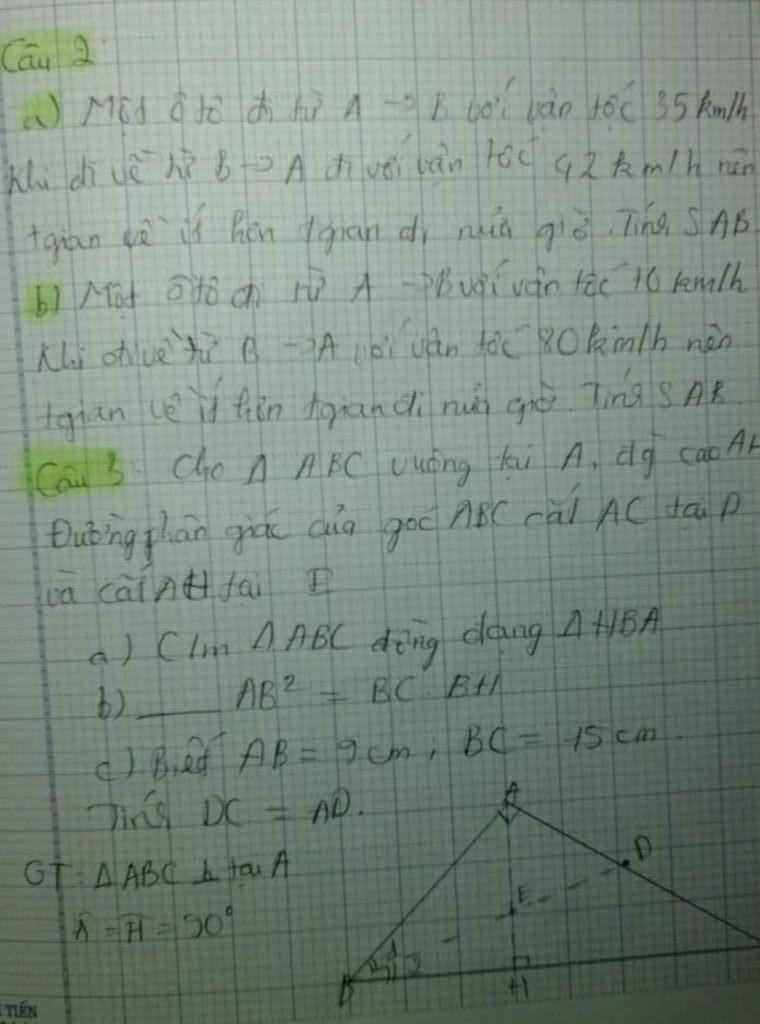 Câu 2
a) Một ô tô đi từ A -> B với vận tốc 35 km/h
Khi đi về từ B -> A đi với vận tốc 42 km/h nên
tgian về ít hơn tgian đi nửa giờ. Tính S AB
b) Một ô tô đi từ A -> B với vận tốc km/h
Khi đi về từ B -> A với vận tốc 80 km/h nên
tgian về ít hơn tgian đi nửa giờ. Tính S AB.
Câu 3. Cho Δ ABC vuông tại A, đg cao AH
Đường phân giác của góc ABC cắt AC tại D
và cắt AH tại E
a) C/m Δ ABC đồng dạng Δ HBA
b) ___ AB² = BC . BH
c) Biết AB = 9 cm, BC = 15 cm.
Tính DC = AD.
A
GT: Δ ABC ⊥ tại A
D
E
B
H
TIẾN